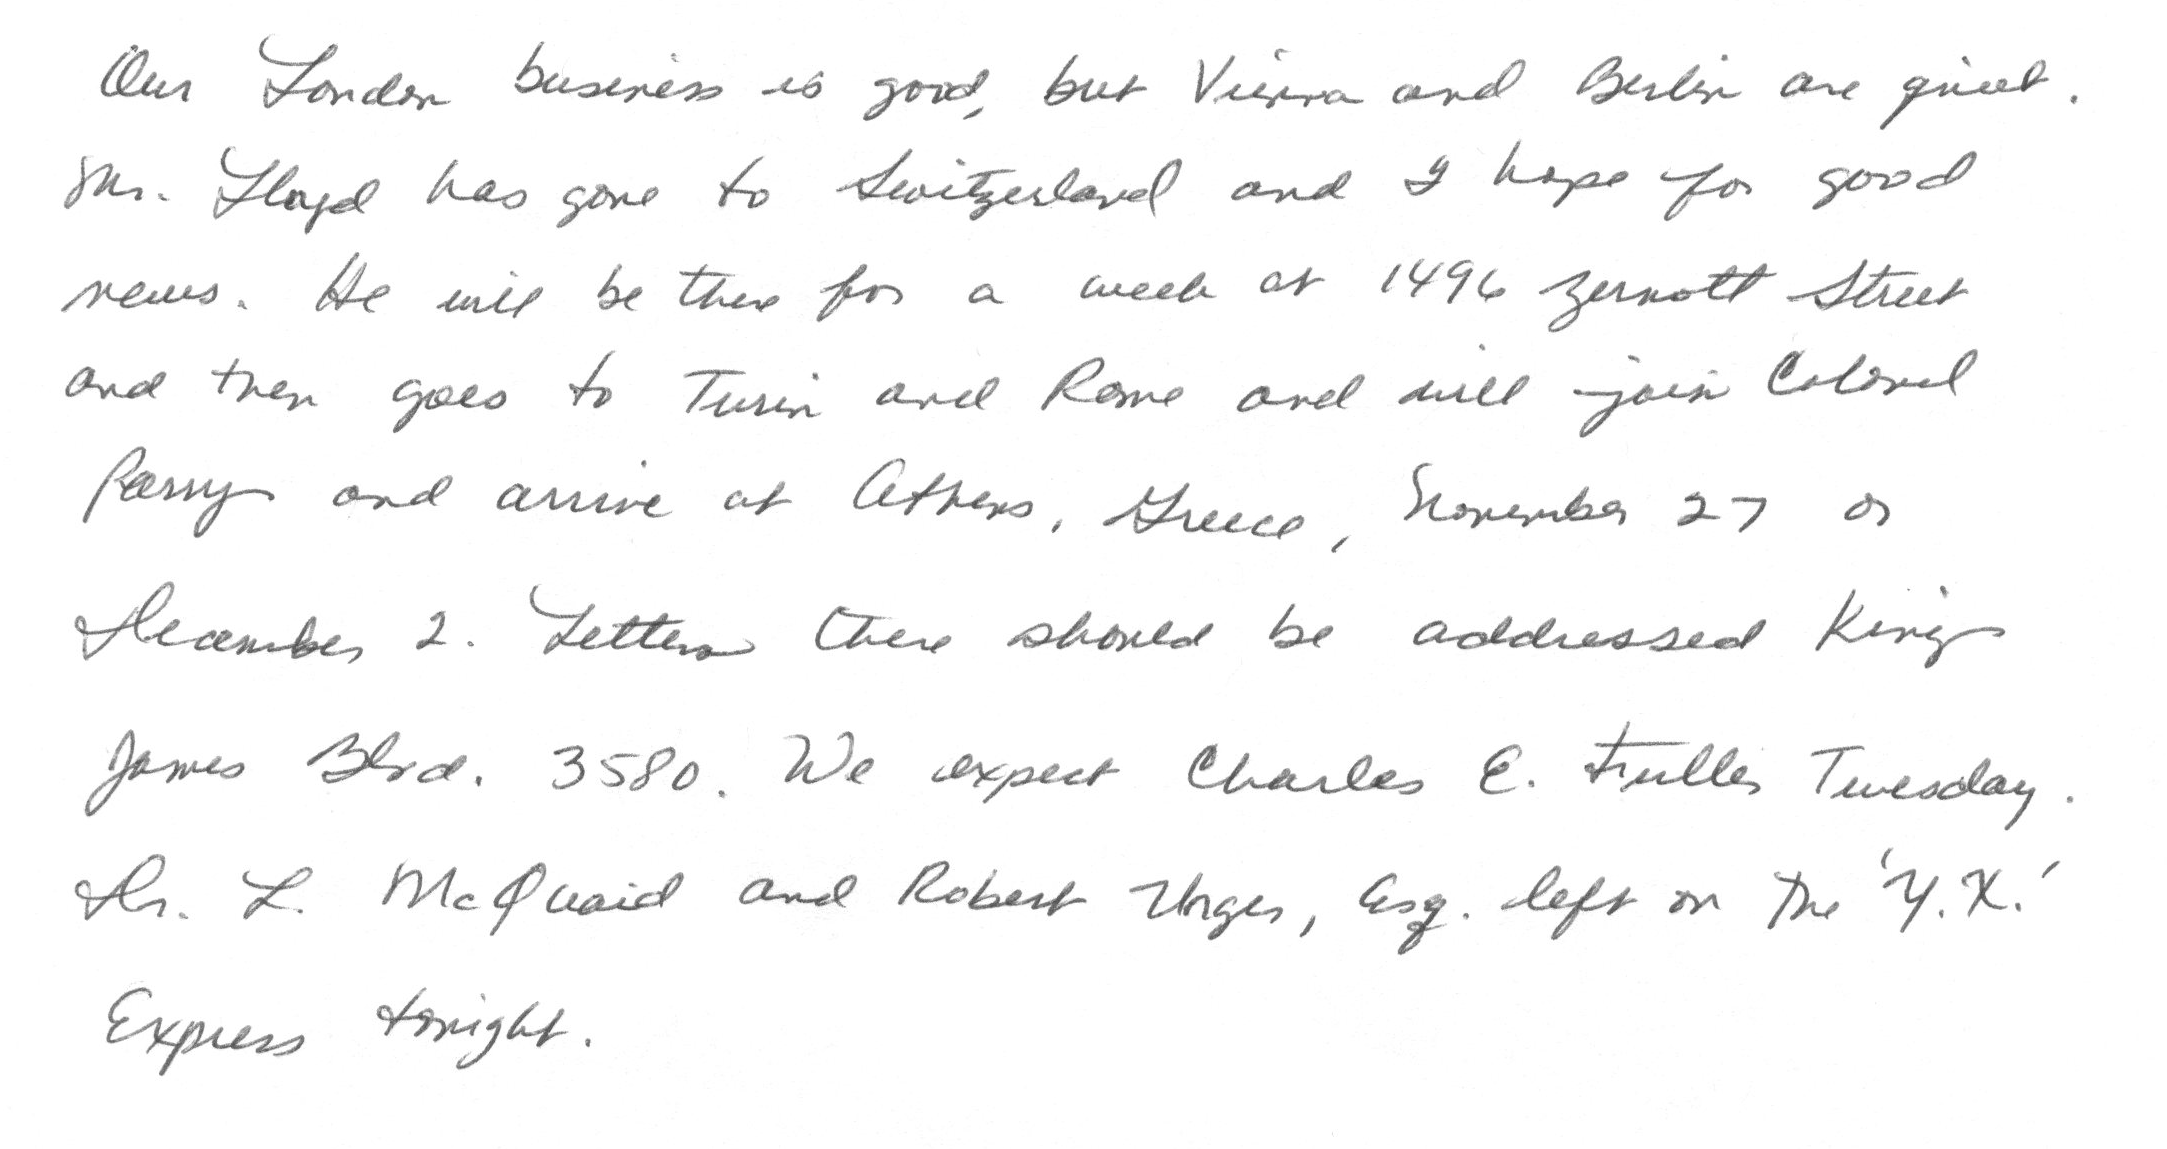 Our London business is good, but Vienna and Berlin are quiet.
Mr. Lloyd has gone to Switzerland and I hope for good
news. He will be there for a week at 1496 Zermott Street
and then goes to Turin and Rome and will join Colonel
Parry and arrive at Athens, Greece, November 27 or
December 2. Letters there should be addressed King
James Blvd. 3580. We expect Charles E. Fuller Tuesday.
Dr. L. McQuaid and Robert Unger, Esq. left on the 'Y.X.'
Express tonight.